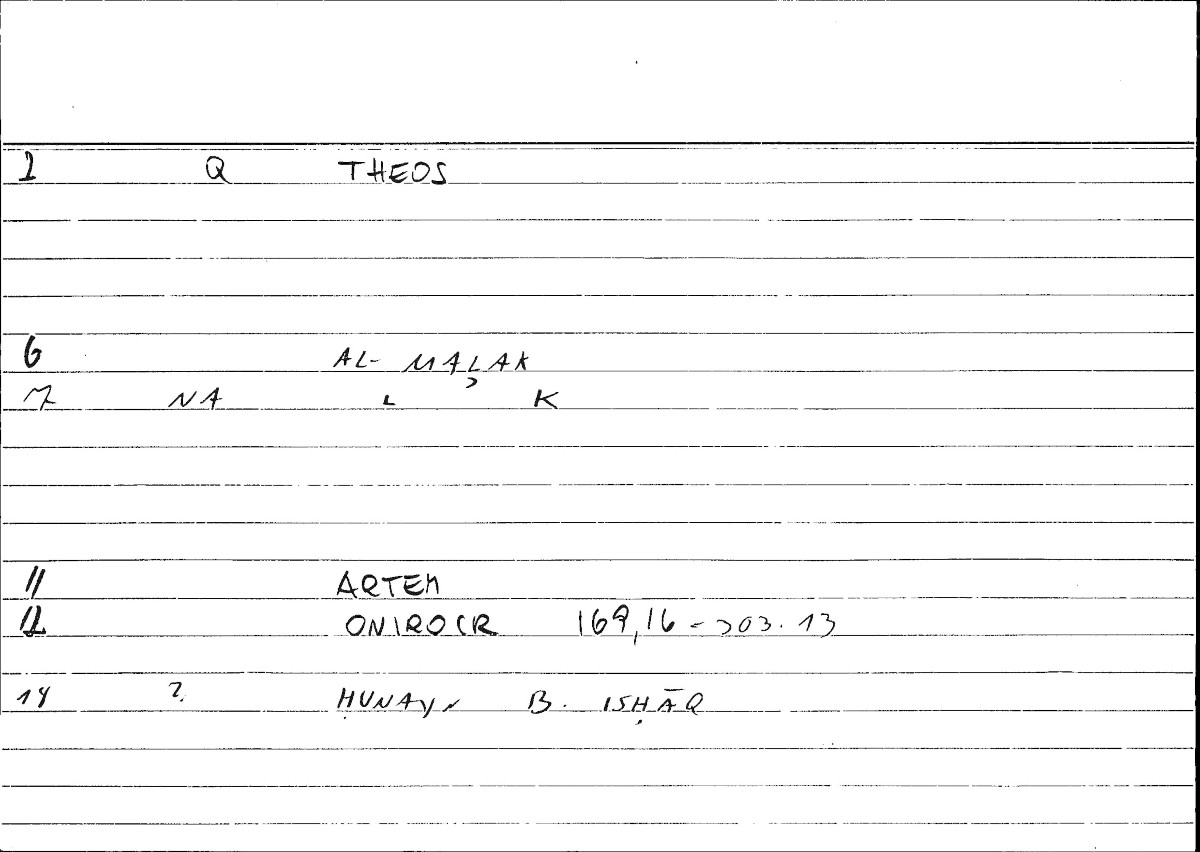 1 Q THEOS
6 AL- MALAK
7 NA L K
11 ARTEM
12 ONIROCR 169,16 - 303.13
14 ? ḤUNAYN B. ISḤĀQ